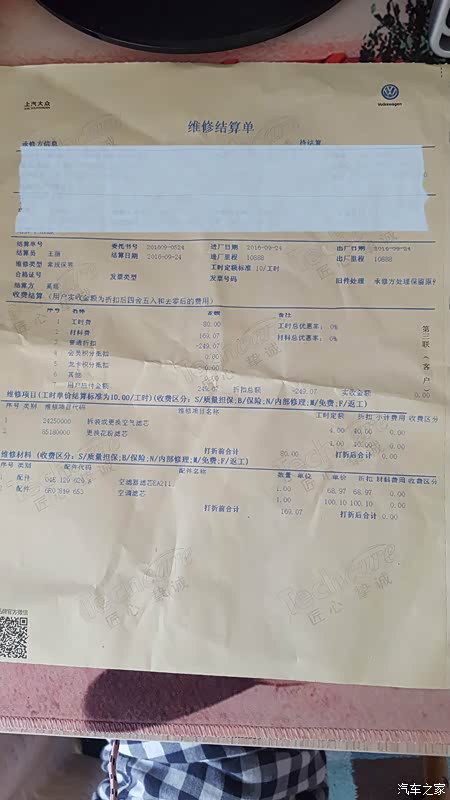 上汽大众
Volkswagen
维修结算单
承修方信息 待结算
结算单号 委托书号 201609-0524 进厂日期 2016-09-24 出厂日期 2016-09-24
结算员 王丽 结算日期 2016-09-24 进厂里程 10888 出厂里程 10888
维修类型 常规保养 工时定额标准 10/工时
合格证号 发票类型 发票号码 旧件处理 承修方处理保留原件
结算方
收费结算 (用户实收金额为折扣后四舍五入和去零后的费用)
序号 名称 金额 备注
1 工时费 80.00 工时总优惠率: 0%
2 材料费 169.07 材料总优惠率: 0%
3 普通折扣 -249.07
4 会员积分抵扣 0.00
5 龙卡积分抵扣 0.00
6 其他 0.00
7 用户应付金额 折扣总额 -249.07 实收金额 0.00
第二联 (客户)
维修项目(工时单价结算标准为10.00/工时)(收费区分: S/质量担保;B/保险;N/内部修理;M/免费;F/返工)
序号 类别 维修项目代码 维修项目名称 工时定额 折扣 小计费用 收费区分
1 24250000 拆装或更换空气滤芯 4.00 40.00 0.00
2 85180000 更换花粉滤芯 4.00 40.00 0.00
打折前合计 80.00 打折后合计 0.00
维修材料 (收费区分: S/质量担保;B/保险;N/内部修理;M/免费;F/返工)
序号 类别 配件代码 配件名称 数量 单位 单价 折扣 材料费用 收费区分
配件 04E 129 620 A 空滤器滤芯EA211 1.00 68.97 68.97 0.00
配件 空调滤芯 1.00 100.10 100.10 0.00
打折前合计 169.07 打折后合计 0.00
Techcare
匠心 挚诚
Techcare
匠心 挚诚
品牌官方微信
汽车之家